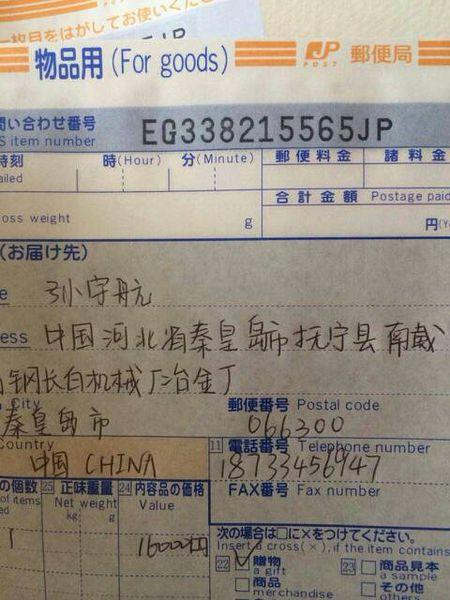 一枚目をはがしてお使いくだ
JP
物品用 (For goods)
JP POST 郵便局
問い合わせ番号
S item number
EG338215565JP
時刻
ailed
時(Hour) 分(Minute)
郵便料金 諸料金
合計金額 Postage paid
oss weight g
円(Y
(お届け先)
e 孙宇航
ess 中国河北省秦皇岛市抚宁县南戴
钢长白机械厂冶金厂
City
秦皇岛市
郵便番号 Postal code
066300
Country
中国 CHINA
11 電話番号 Telephone number
18733456947
FAX番号 Fax number
の個数
of items
1
25 正味重量
Net weight
kg g
24 内容品の価格
Value
16000円
次の場合は□に×をつけてください。
Insert a cross(×), if the item contains
22 贈物
a gift
商品
merchandise
23 商品見本
a sample
その他
others